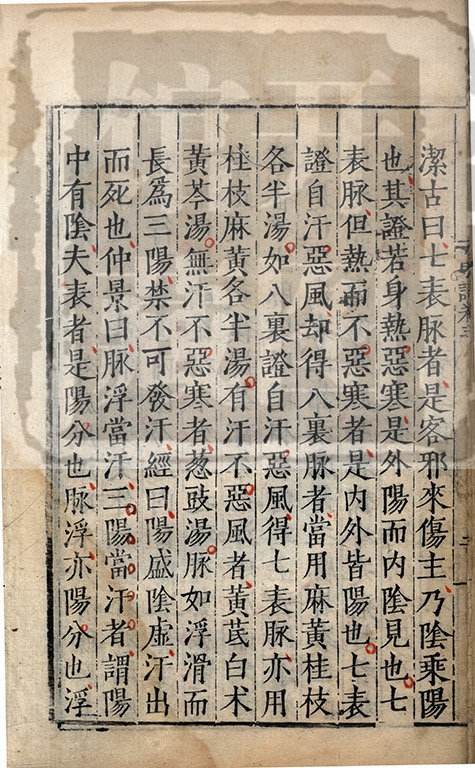 潔古曰七表脉者是客邪來傷主乃陰乗陽
也其證若身熱惡寒是外陽而内陰見也七
表脉但熱而不惡寒者是内外皆陽也七表
證自汗惡風却得八裏脉者當用麻黄桂枝
各半湯如八裏證自汗惡風得七表脉亦用
桂枝麻黄各半湯有汗不惡風者黄芪白术
黄芩湯無汗不惡寒者葱豉湯脉如浮滑而
長為三陽禁不可發汗經曰陽盛陰虛汗出
而死也仲景曰脉浮當汗三陽當汗者謂陽
中有陰夫表者是陽分也脉浮亦陽分也浮